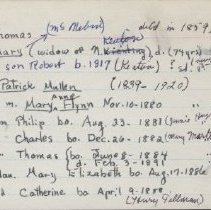 homas (Mc Mahon) died in 1859
mary (widow of N. Keaton d. (74 yrs)
son Robert b. 1817 (Keaton) d.
Patrick Mullen (1839 - 1920)
m. Mary Anne Flynn Nov. 10 - 1880
n Philip bo. Aug. 23 - 1881
Charles bo. Dec. 26 - 1882 (mary
" Thomas { bo. June 8 - 1884
d. Feb. 3 - 1887
dau. Mary Elizabeth bo. Aug. 17 - 1886
d Catherine bo April 9 - 1888
(Henry Tillman)